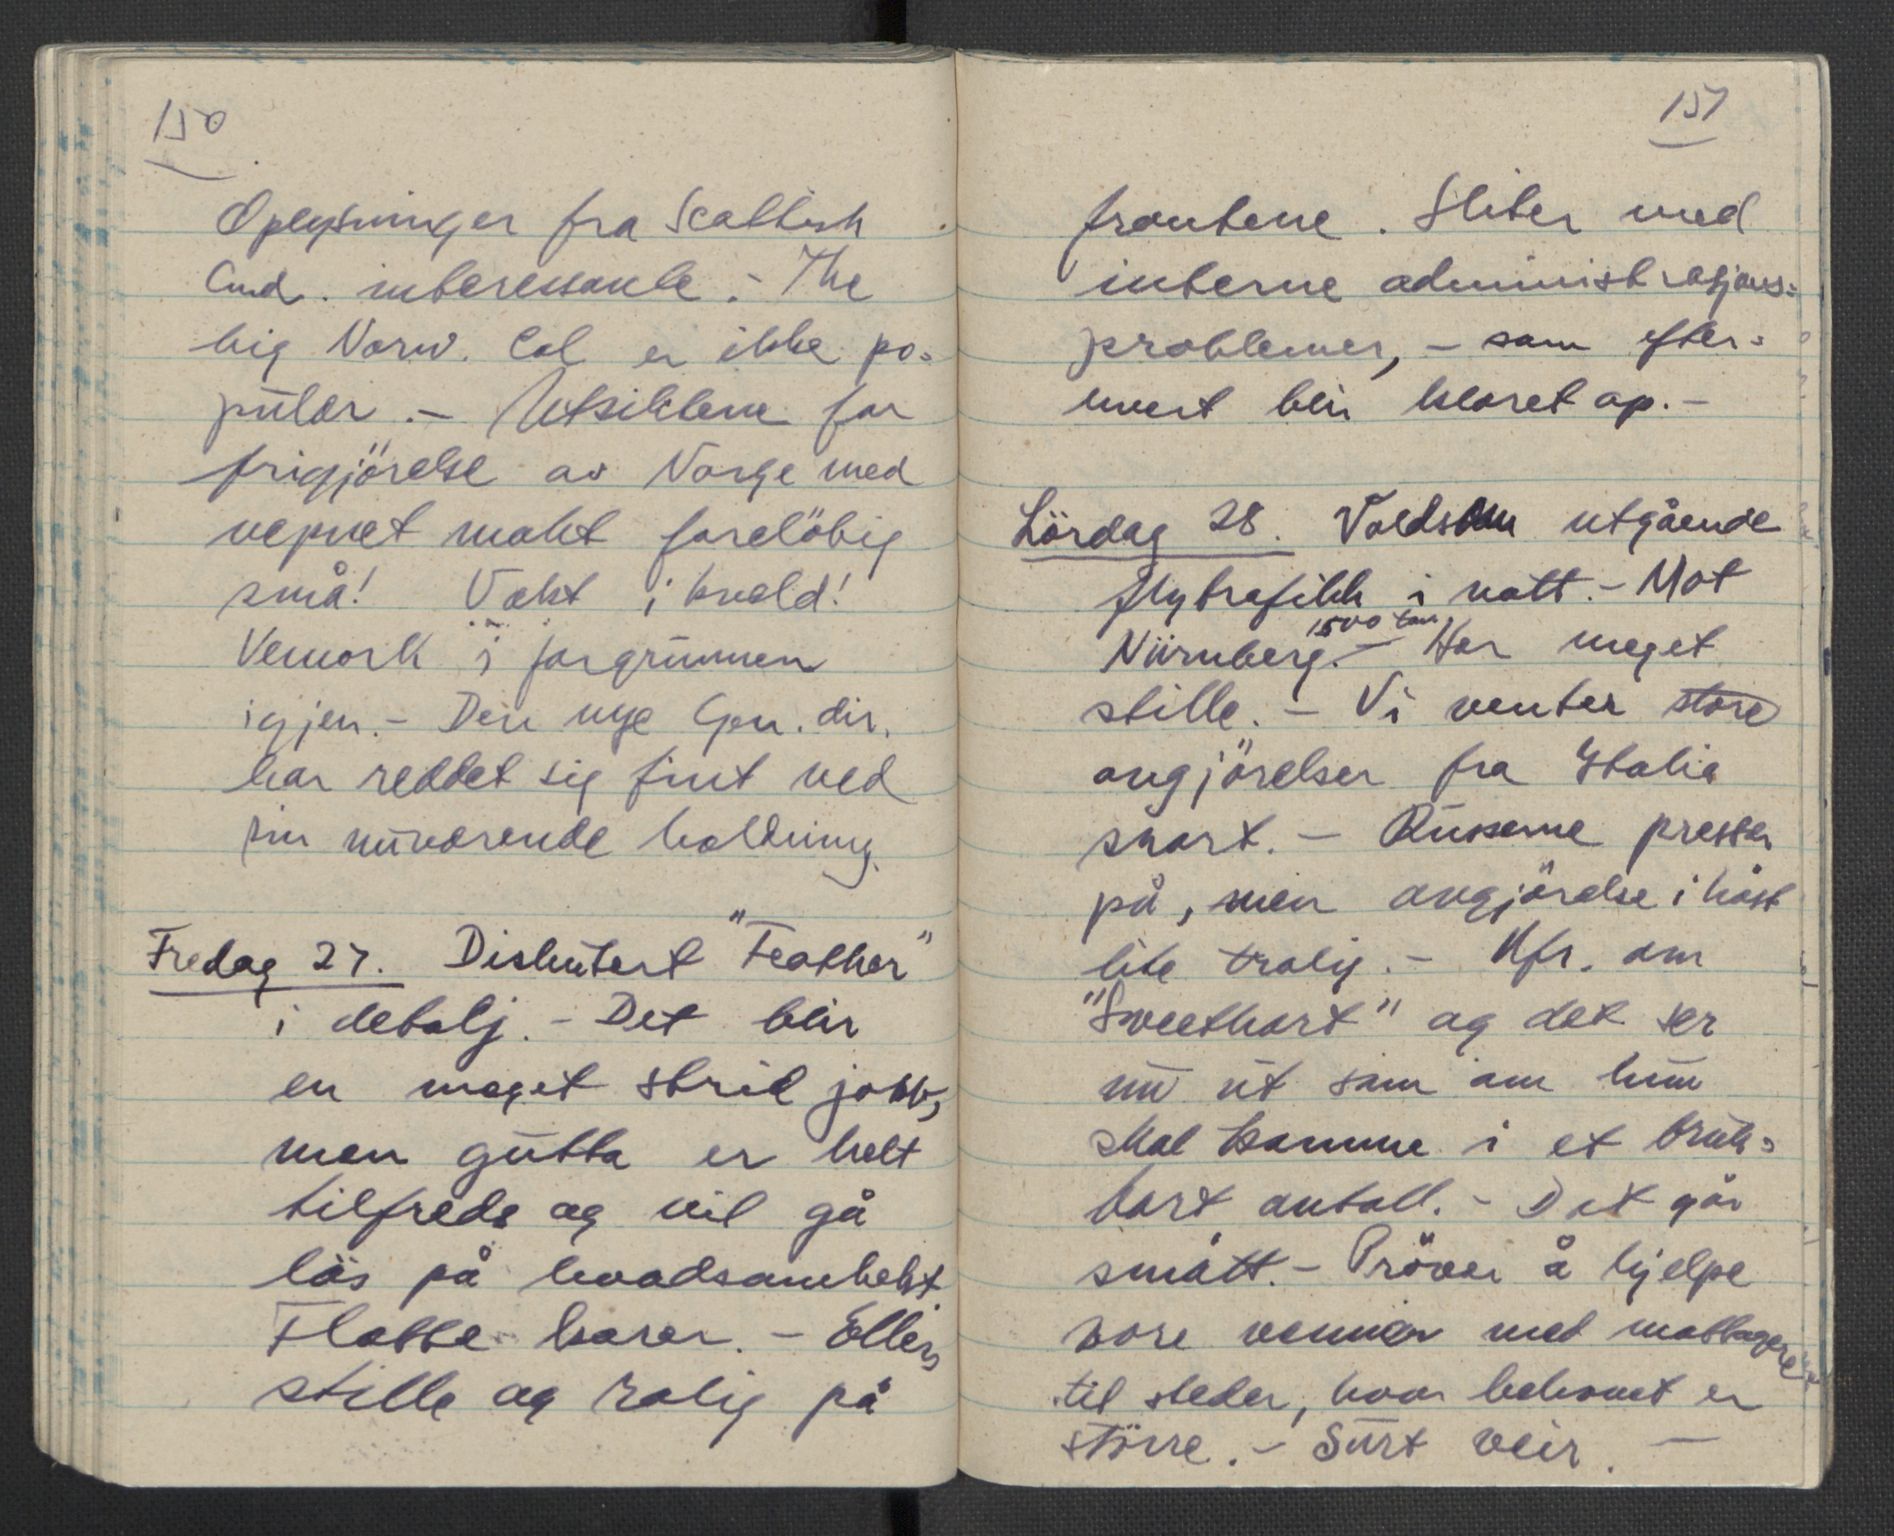 150
Oplysninger fra Scottish
Cmd. interessante. - The
big Norw. Col er ikke po=
pulær. - Utsiktene for
frigjörelse av Norge med
vepnet makt foreløbig
små! Vakt i kveld!
Vemork i forgrunnen
igjen. - Den nye Gen. dir.
har reddet sig fint ved
sin nuværende holdning.
Fredag 27. Diskutert "Feather"
i detalj. - Det blir
en meget strid jobb,
men gutta er helt
tilfreds og vil gå
løs på hvadsomhelst
Flotte karer. - Ellers
stille og rolig på
151
frontene. Sliter med
interne administrasjons=
problemer, - som efter=
hvert blir klaret op. -
Lördag 28. Voldsom utgående
flytrafikk i natt. - Mot
Nürnberg. 1500 tonn - Her meget
stille. - Vi venter store
avgjörelser fra Italia
snart. - Russerne presser
på, men avgjörelse i höst
lite trolig. - Kfr. om
"Sweethart" og det ser
nu ut som om hun
skal komme i et bruk=
bart antall. - Det går
smått. - Pröver å hjelpe
vore venner med mottagere
til steder, hvor behovet er
större. - Surt veir. -